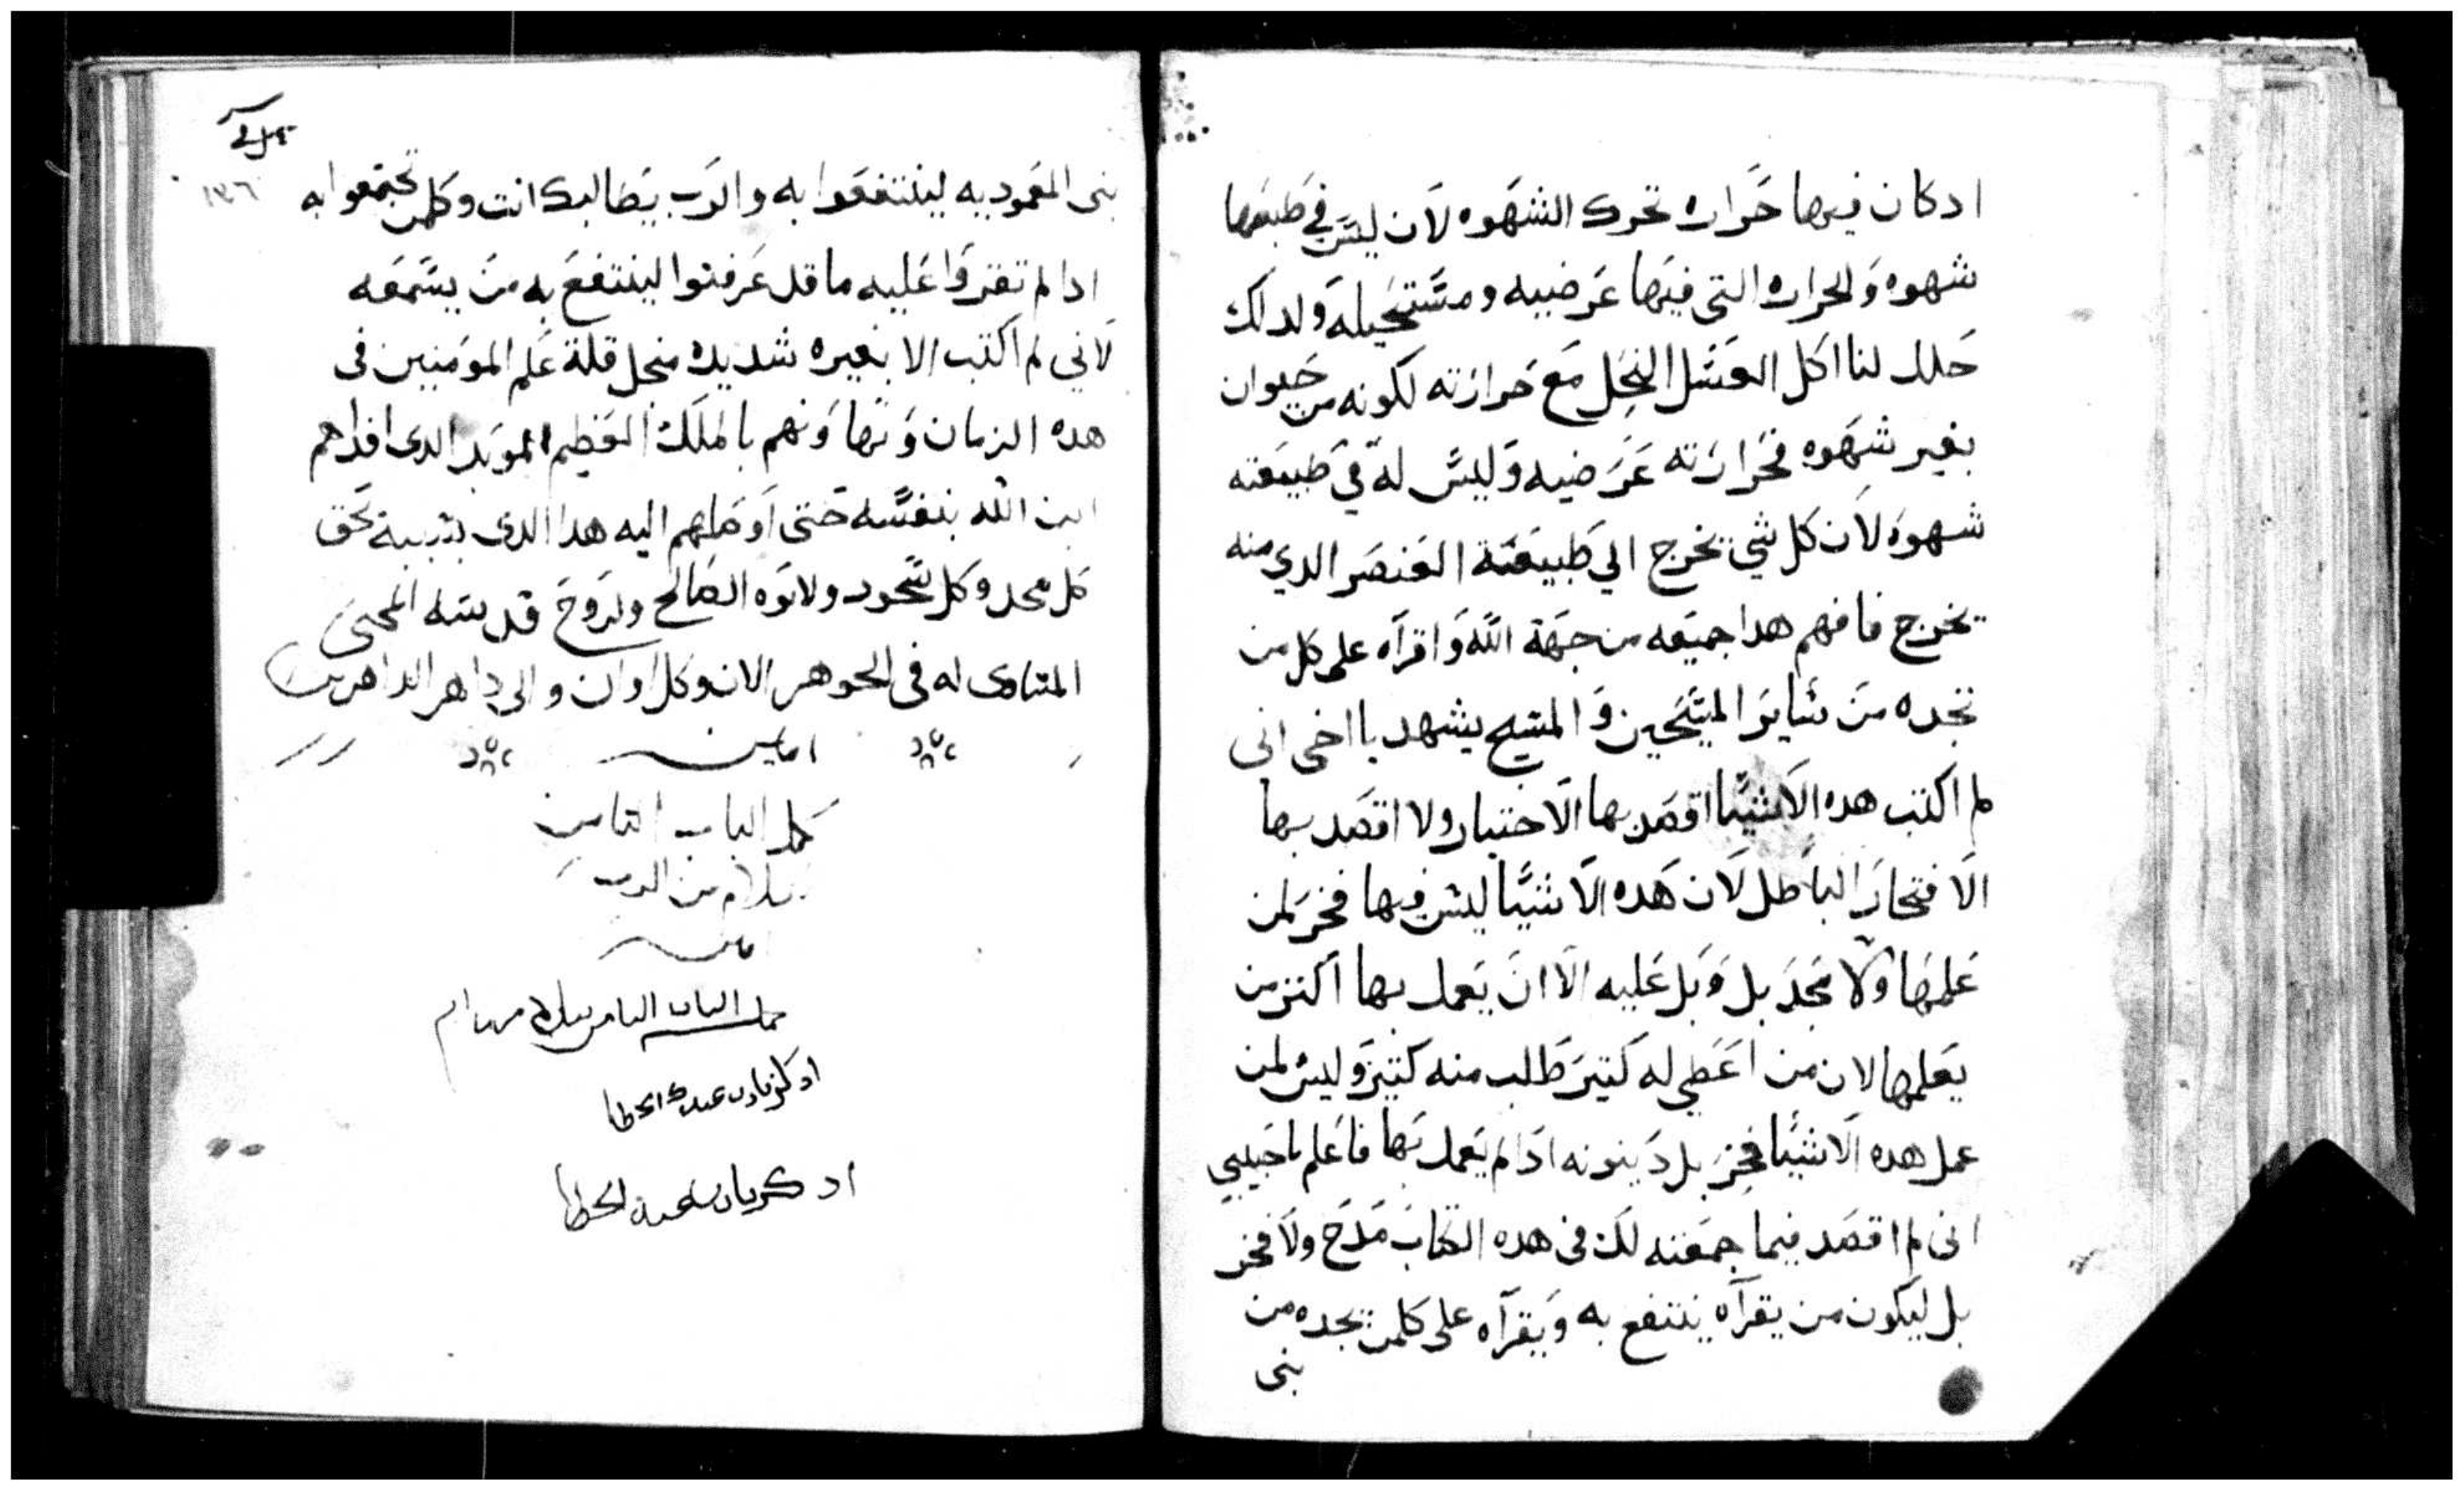 ادكان فيها حراره تحرك الشهوه لان ليس في طبعها
شهوه والحراره التي فيها عرضيه ومستحيله ولدلك
حلل لنا اكل العسل النحل مع حرارته لكونه من حيوان
بغير شهوه فحرارته عرضيه وليس له في طبيعته
شهوه لان كل شي يخرج الي طبيعة العنصر الدي منه
يخرج فافهم هدا جميعه من جهة الله واقراه على كل من
تجده من ساير المسيحين والمسيح يشهد يا اخى انى
لم اكتب هده الاشيا اقصد بها الاختبار ولا اقصد بها
الافتخار الباطل لان هده الاشيا ليس فيها فخر لمن
علمها ولا مجد بل وبل عليه الا ان يعمل بها اكتر من
يعلمها لان من اعطي له كتير طلب منه كتير وليس لمن
عمل هده الاشيا فخر بل دينونه ادا لم يعمل بها فاعلم يا حبيبي
انى لم اقصد فيما جمعته لك فى هده الكتاب مدح ولا فخر
بل ليكون من يقراه ينتفع به ويقراه على كلمن تجده من
بنى
١٣٦
بنى المعموديه لينتفعوا به والرب يطالبك انت وكلمن تجتمعوا به
ادا لم تقروا عليه ما قد عرفتوا لينتفع به من يسمعه
لاني لم اكتب الا بغيره شديده منجل قلة علم المومنيين فى
هده الزمان وتهاونهم بالملك العظيم المويد الدى افداهم
ابن الله بنفسه حتى اوصلهم اليه هدا الدى ينبغي يحق
كل مجد وكل سجود ولابوه الصالح ولروح قدسه المحيى
المساوى له فى الجوهر الان وكل اوان والى داهر الداهرين
امين
كمل الباب التامن
بسلام من الرب
امين
كمل الباب التامن بسلام من الرب
ادكر يارب عبدك الخطا
ادكر يارب عبدك الخطا